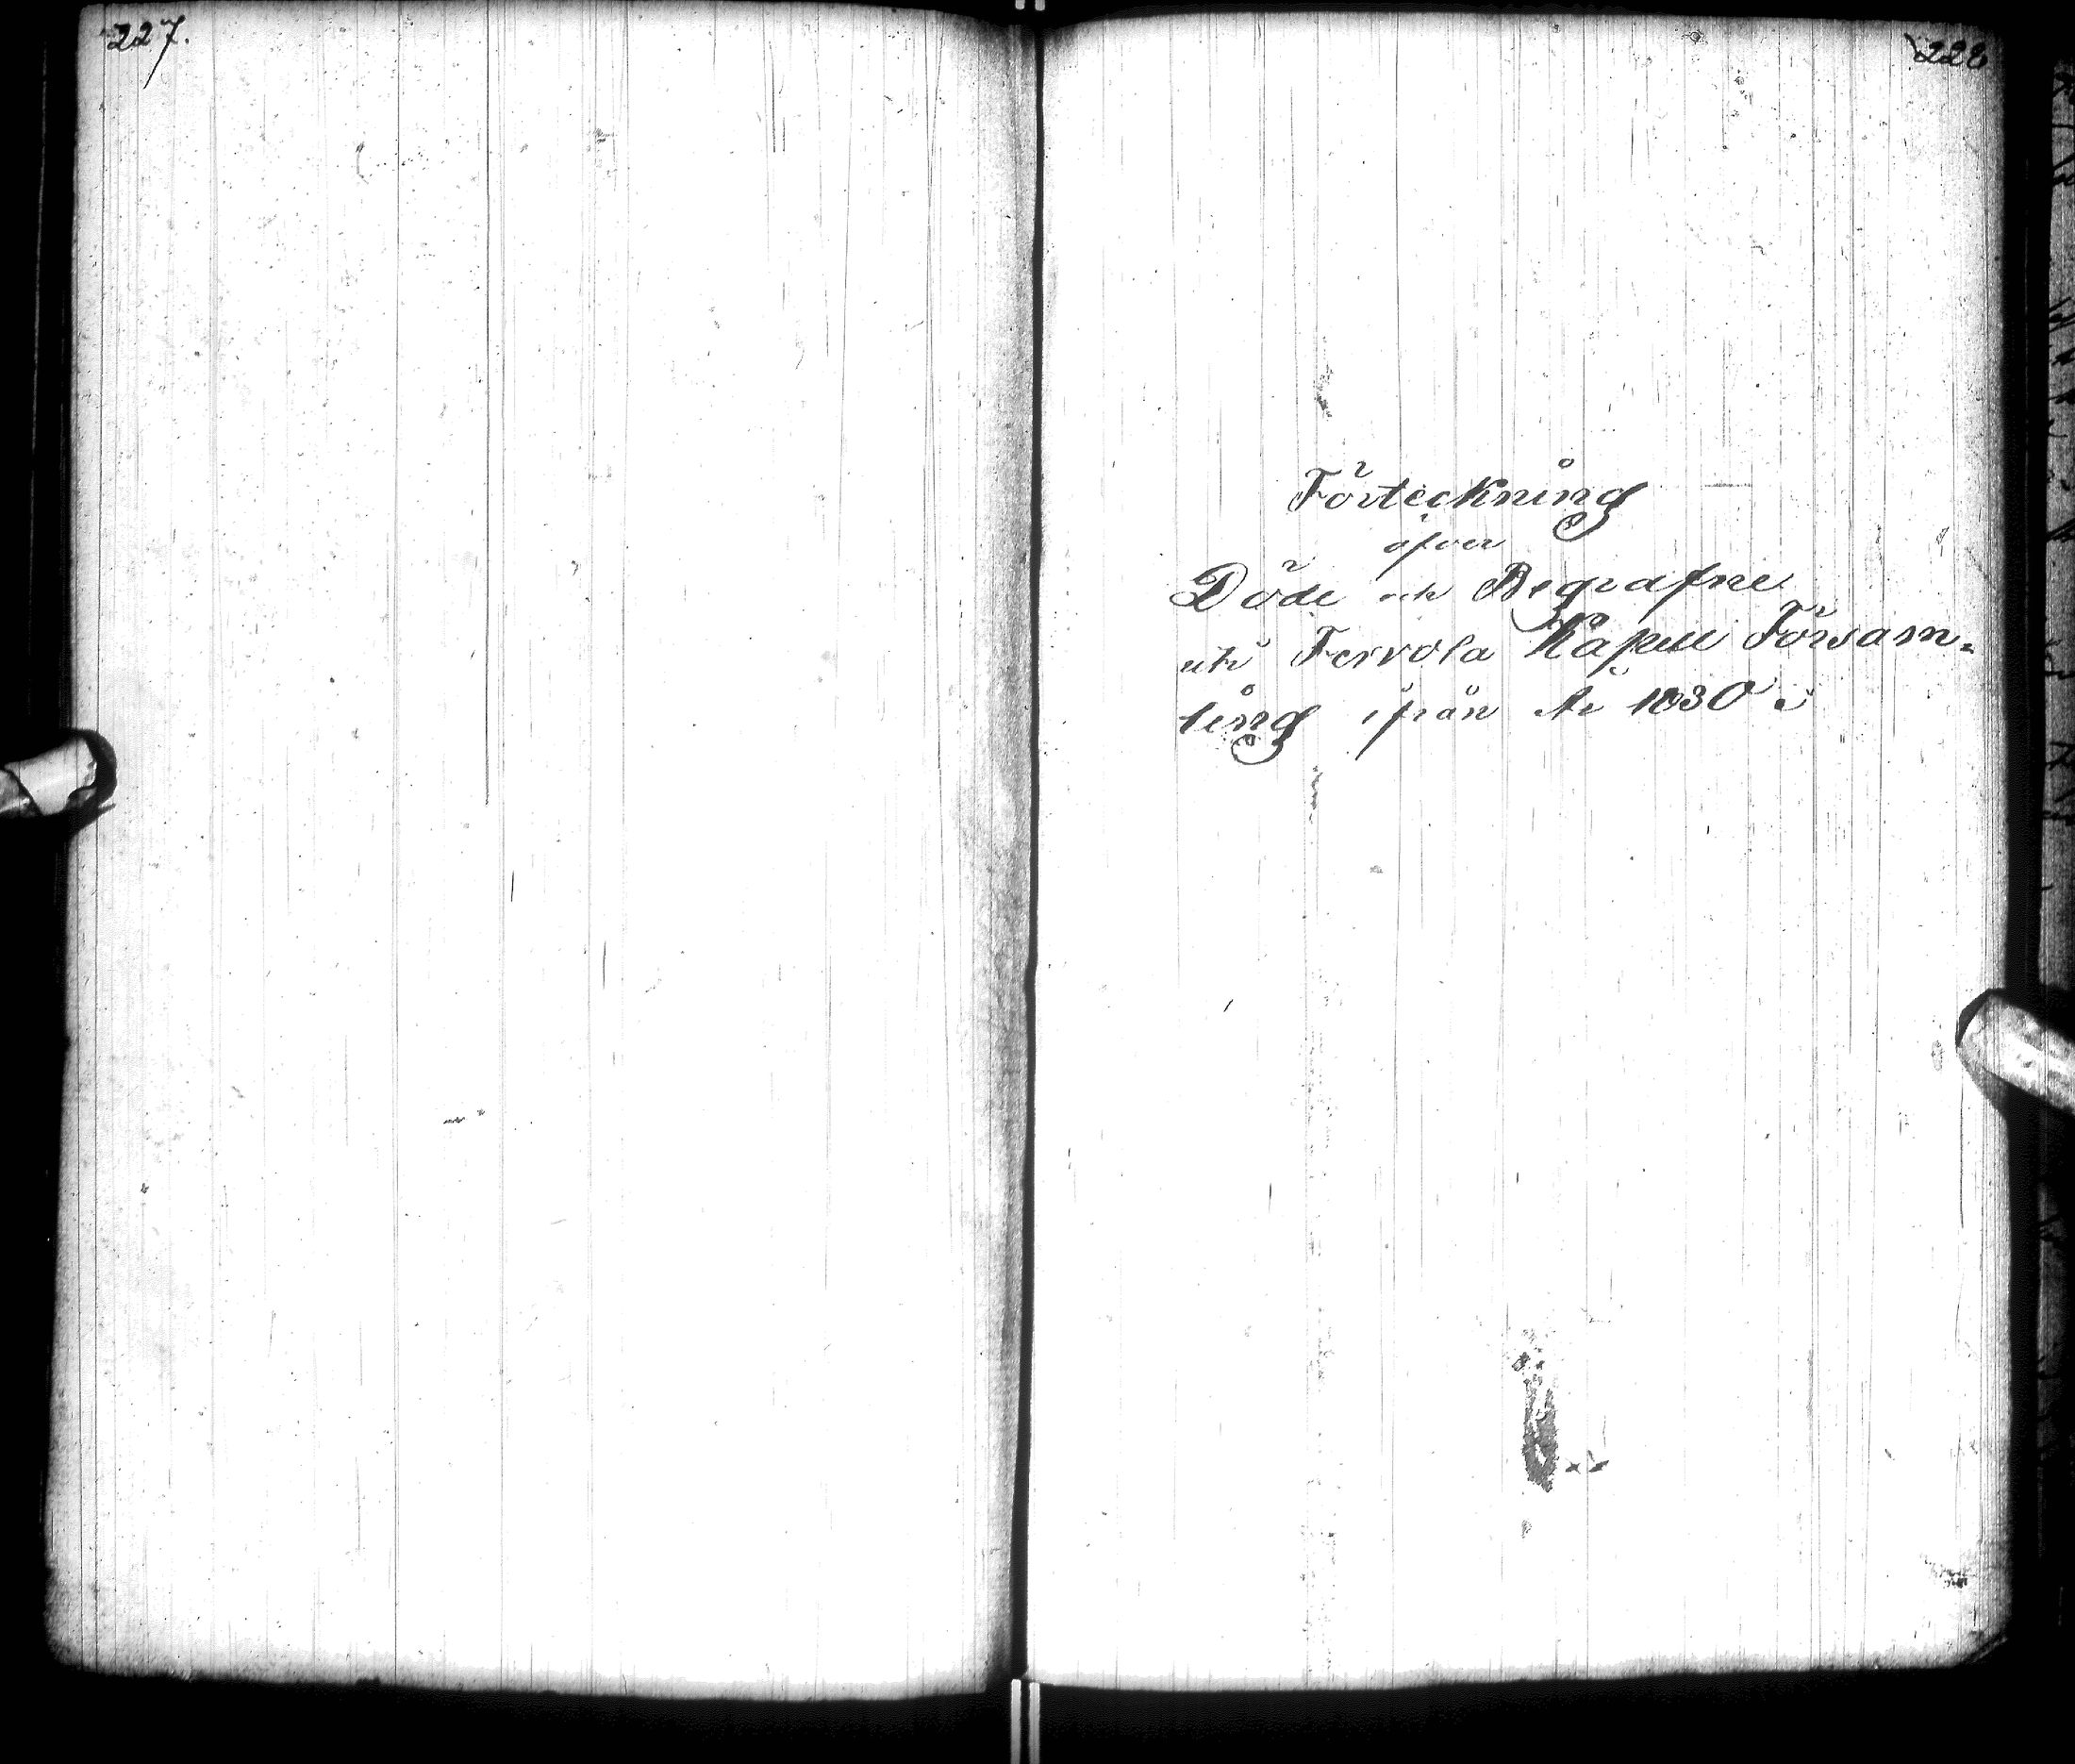 227.
228
Förteckning
öfver
Döde och Begrafne
uti Tervola Kapell Församling
ling ifrån År 1830